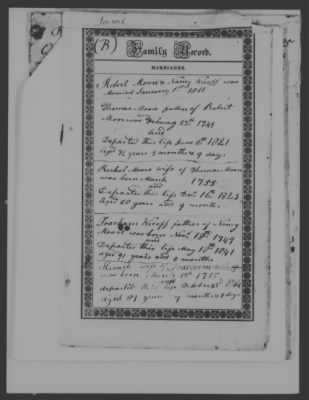 (B)
Family Record.
MARRIAGES.
Robert Moore & Nancy was
Married January 1st 1811
Thomas Moore father of Robert
Moore was February 23rd 1749
and
Departed this life June 8th 1821
Aged 72 years 3 months & 9 days
Rachel Moore wife of Thomas Moore
was born March 1755
and
Departed this life Dec 16th 1823
Aged 68 years and 9 months
father of Nancy
Moore was born Novr 1749
and
Departed this life May 18th 1841
aged 91 years and 6 months
Hannah wife of
was born March 1755
and
departed this life October 23rd 1841
aged years 7 months & days